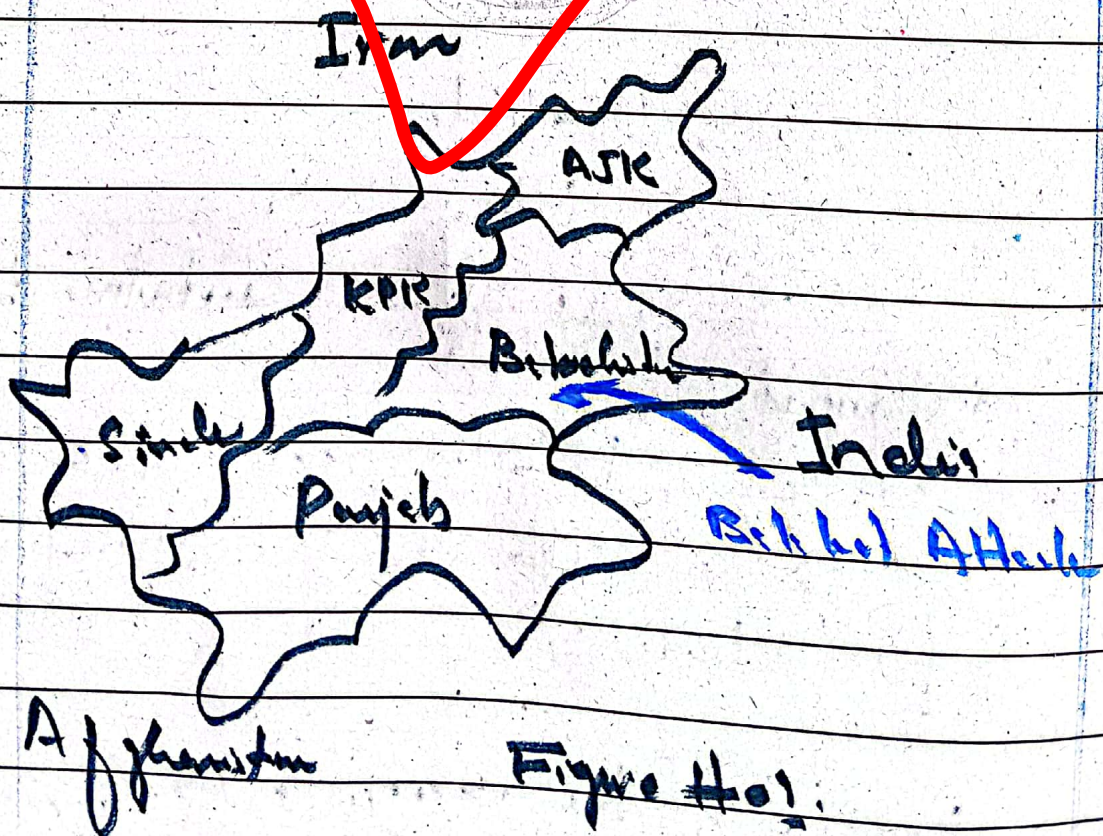 Iran
AJK
KPK
Balochistan
Sindh
India
Punjab
Balakot Attack
Afghanistan
Figure #01.